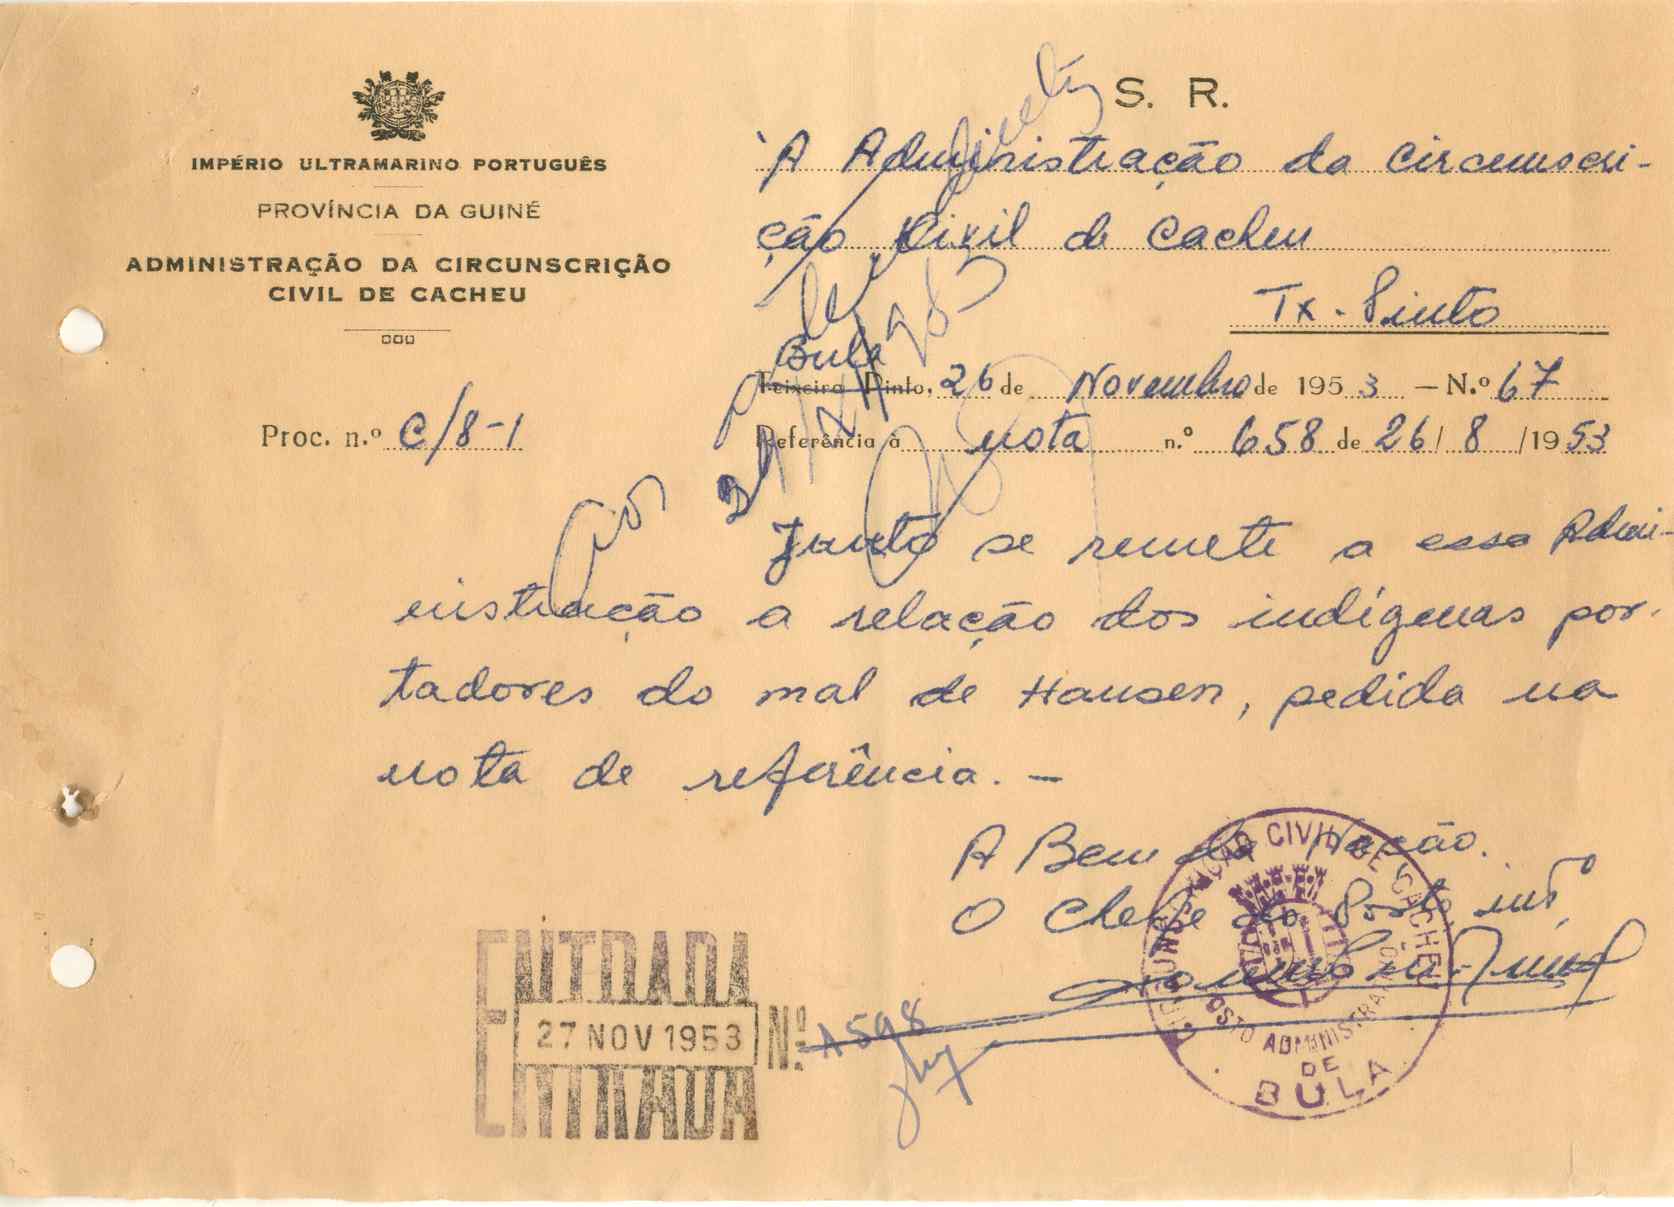 IMPÉRIO ULTRAMARINO PORTUGUÊS
PROVÍNCIA DA GUINÉ
ADMINISTRAÇÃO DA CIRCUNSCRIÇÃO
CIVIL DE CACHEU
S. R.
À Administração da Circunscri-
ção Civil de Cacheu
Tx. Pinto
Bula
Teixeira Pinto, 26 de Novembro de 1953 — N.º 67
Proc. n.º C/8-1
Referência à nota n.º 658 de 26/8/1953
Junto se remete a essa Admi-
nistração a relação dos indígenas por-
tadores do mal de Hansen, pedida na
nota de referência. —
A Bem da Nação.
O Chefe do Posto intº
CIRCUNSCRIÇÃO CIVIL DE CACHEU
POSTO ADMINISTRATIVO
DE
BULA
ENTRADA
27 NOV 1953
Nº A598
ENTRADA